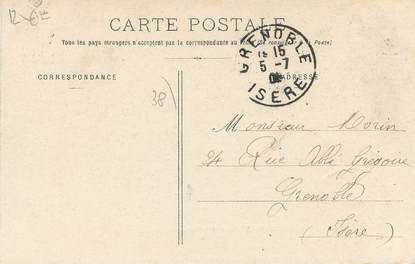 CARTE POSTALE
Tous les pays étrangers n'acceptent pas la correspondance au
CORRESPONDANCE
ADRESSE
GRENOBLE
15
5-7
ISÈRE
38
Monsieur Morin
Rue Abbé Grégoire
Grenoble
(Isère)